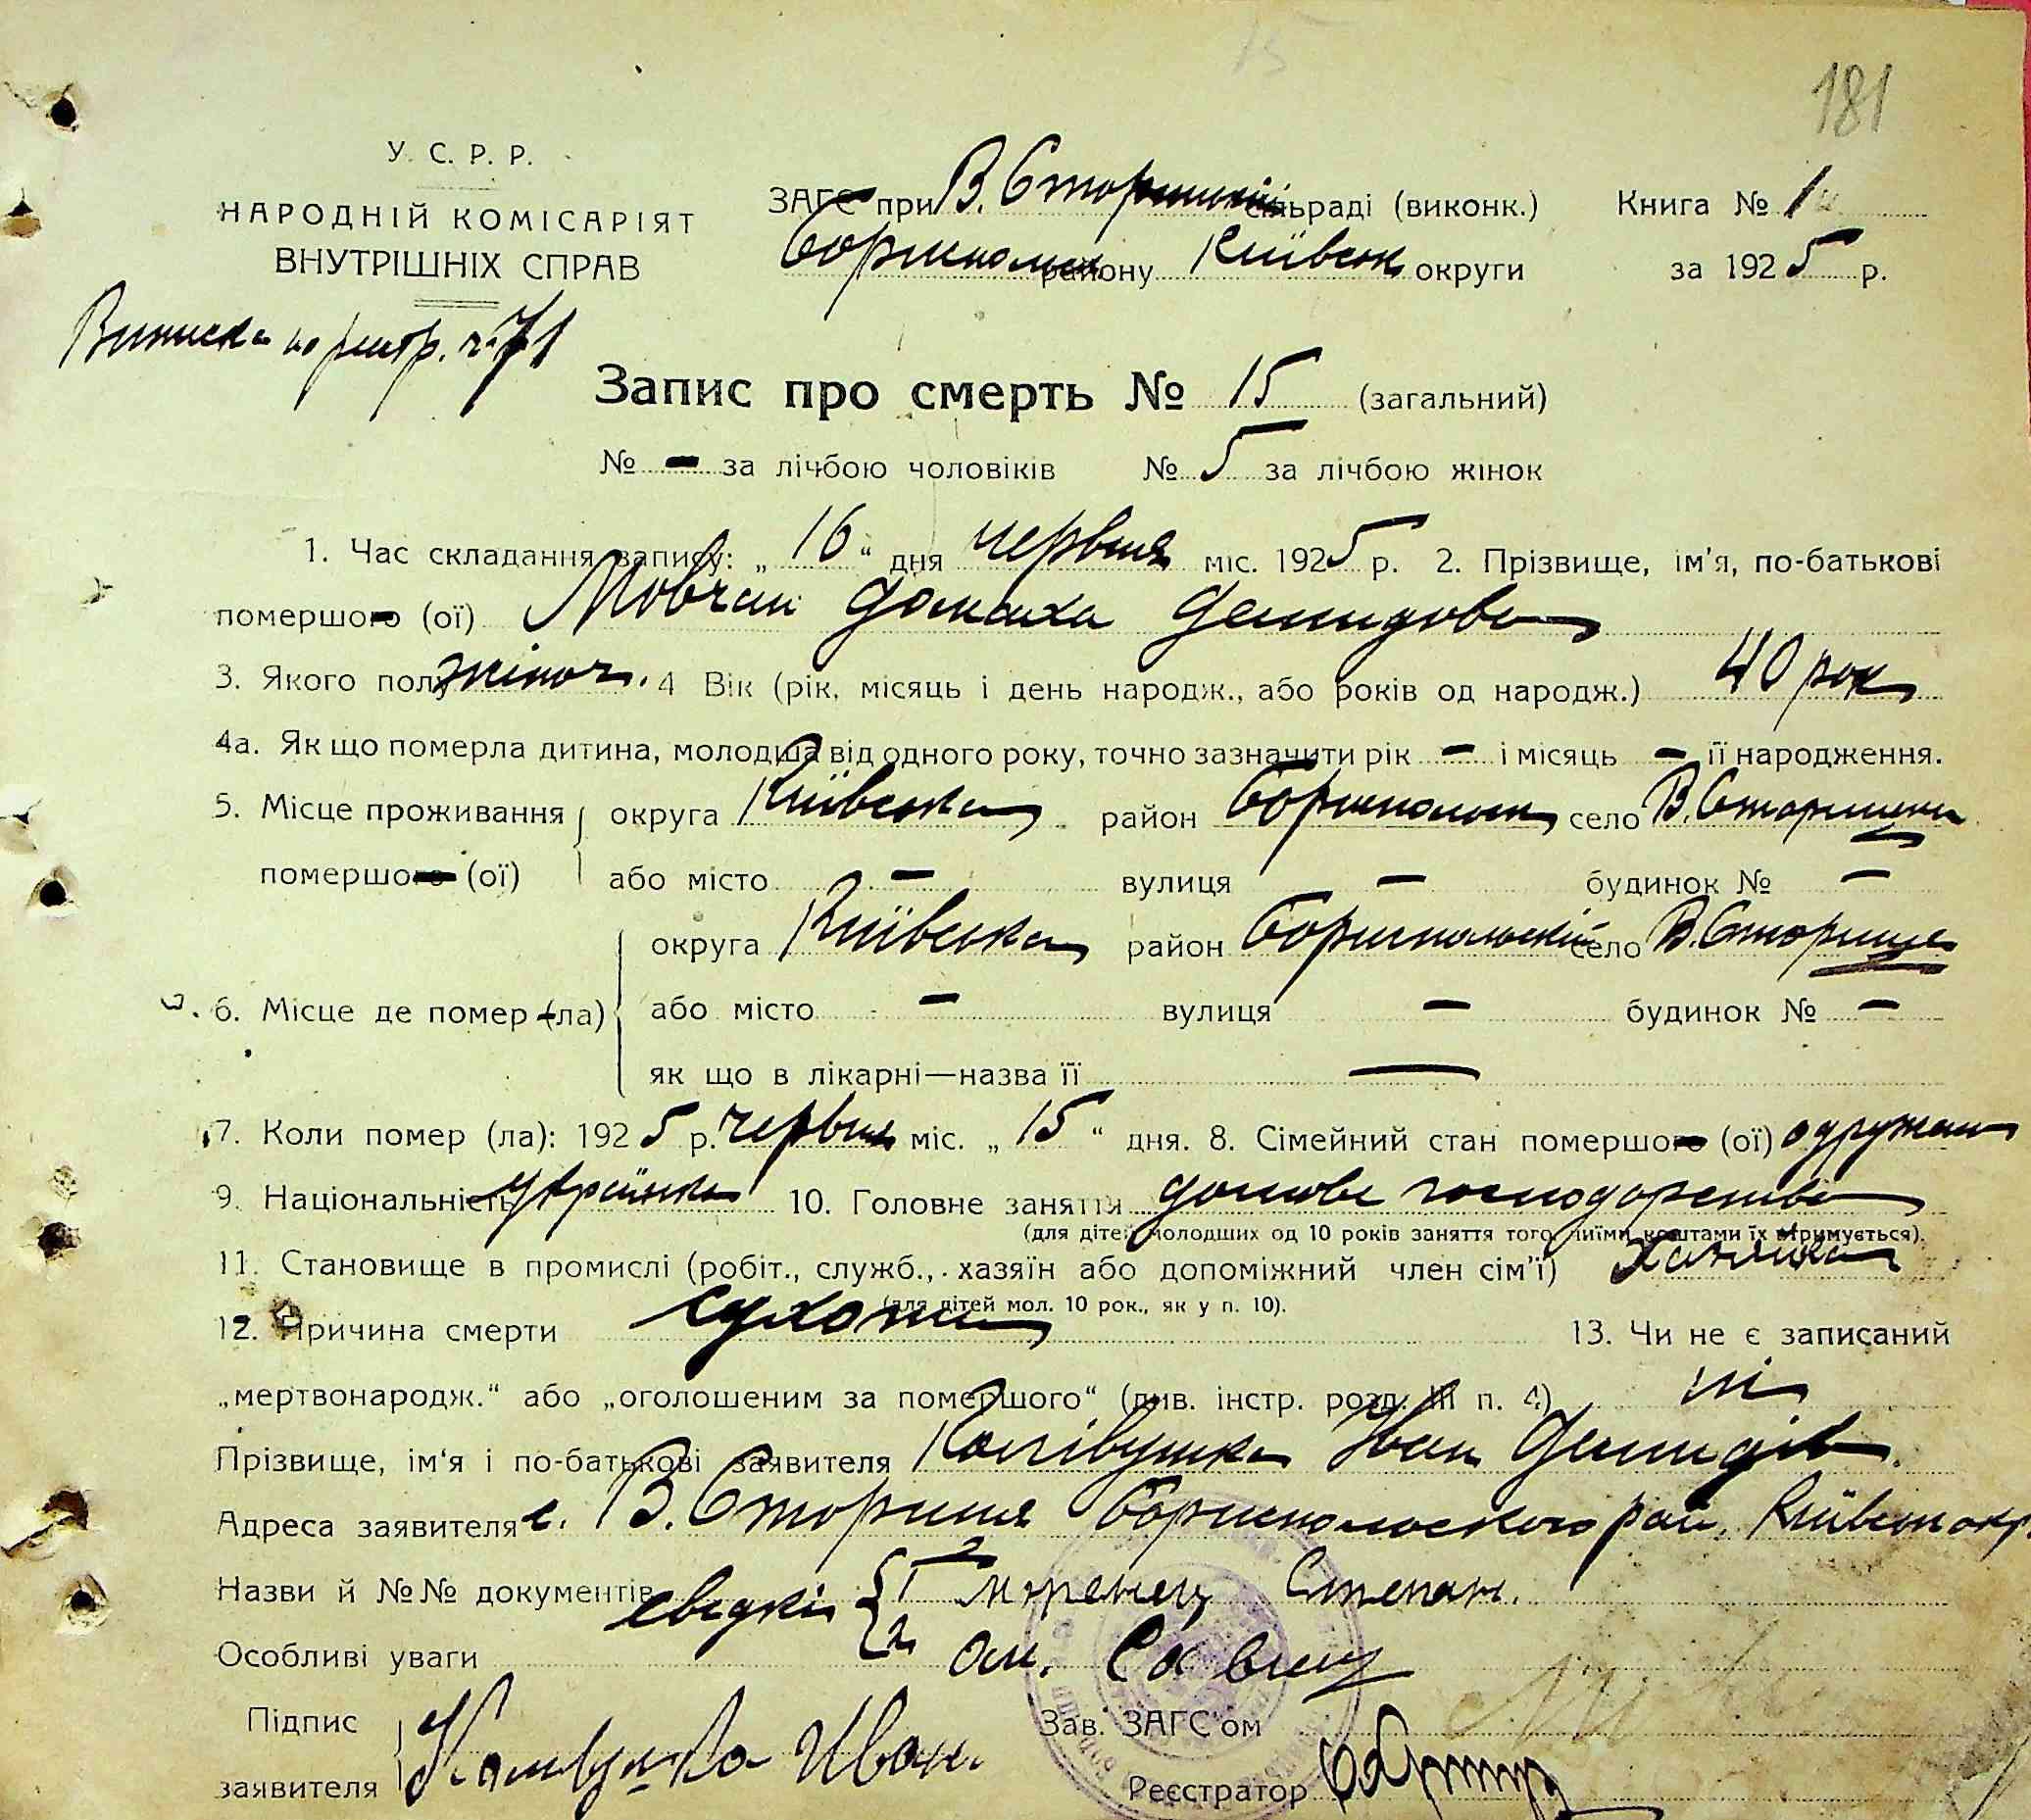 181
У. С. Р. Р.
НАРОДНІЙ КОМІСАРІЯТ
ВНУТРІШНІХ СПРАВ
ЗАГС при В. Сторицькій сільраді (виконк.) Книга № 1
Бориспольск району Київськ округи за 1925 р.
Виписка по реєстр. ч. 71
Запис про смерть № 15 (загальний)
№ — за лічбою чоловіків № 5 за лічбою жінок
1. Час складання запису: „16“ дня червня міс. 1925 р. 2. Прізвище, ім'я, по-батькові
помершого (ої) Мовчан Домаха Демидова
3. Якого полу жіноч. 4 Вік (рік, місяць і день народж., або років од народж.) 40 рок
4а. Як що померла дитина, молодша від одного року, точно зазначити рік — і місяць — її народження.
5. Місце проживання округа Київська район Бориспольск село В. Сторицка
помершого (ої) або місто — вулиця — будинок № —
округа Київська район Бориспольский село В. Сторище
6. Місце де помер (ла) або місто — вулиця — будинок № —
як що в лікарні—назва її —
7. Коли помер (ла): 1925 р. червня міс. „15“ дня. 8. Сімейний стан помершого (ої) одружен
9. Національність українка 10. Головне заняття домове господарство
(для дітей молодших од 10 років заняття того, чиїми коштами їх втримується).
11. Становище в промислі (робіт., служб., хазяїн або допоміжний член сім'ї) Хазяйка
(для дітей мол. 10 рок., як у п. 10).
12. Причина смерти сухоти 13. Чи не є записаний
„мертвонародж.“ або „оголошеним за помершого“ (див. інстр. розд. III п. 4) ні
Прізвище, ім'я і по-батькові заявителя Колівушка Іван Демидів.
Адреса заявителя с. В. Сторища Бориспольского рай. Київськ окр.
Назви й №№ документів свідки 1 Степан.
Особливі уваги 2
Підпис Зав. ЗАГС'ом
заявителя Іван Реєстратор